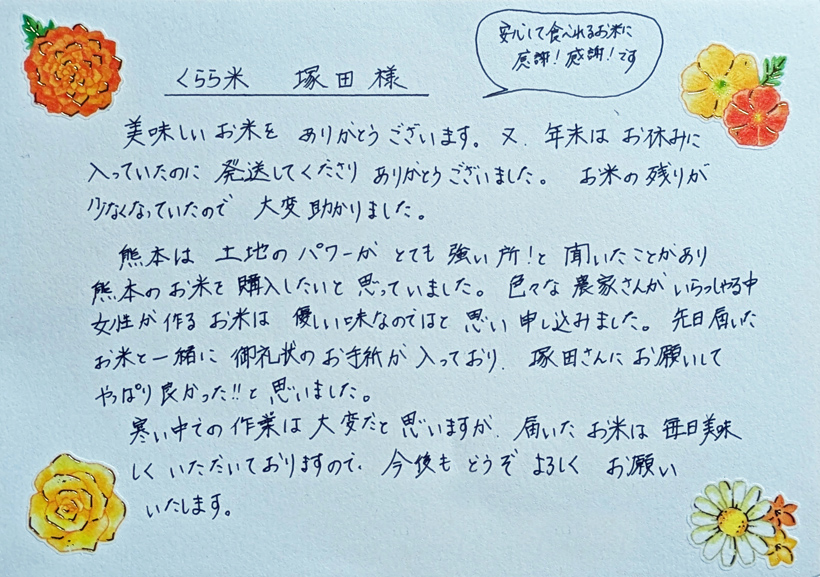 くらら米　塚田様
安心して食べれるお米に
感謝！感謝！です
美味しいお米を ありがとうございます。又、年末は お休みに
入っていたのに 発送してくださり ありがとうございました。 お米の残りが
少なくなっていたので 大変助かりました。
熊本は 土地のパワーが とても強い所！と 聞いたことがあり
熊本のお米を購入したいと思っていました。色々な農家さんがいらっしゃる中
女性が作るお米は 優しい味なのではと思い申し込みました。先日届いた
お米と一緒に御礼状のお手紙が入っており、塚田さんにお願いして
やっぱり良かった!!と思いました。
寒い中での作業は大変だと思いますが、届いたお米は毎日美味
しくいただいておりますので、今後もどうぞよろしく お願い
いたします。